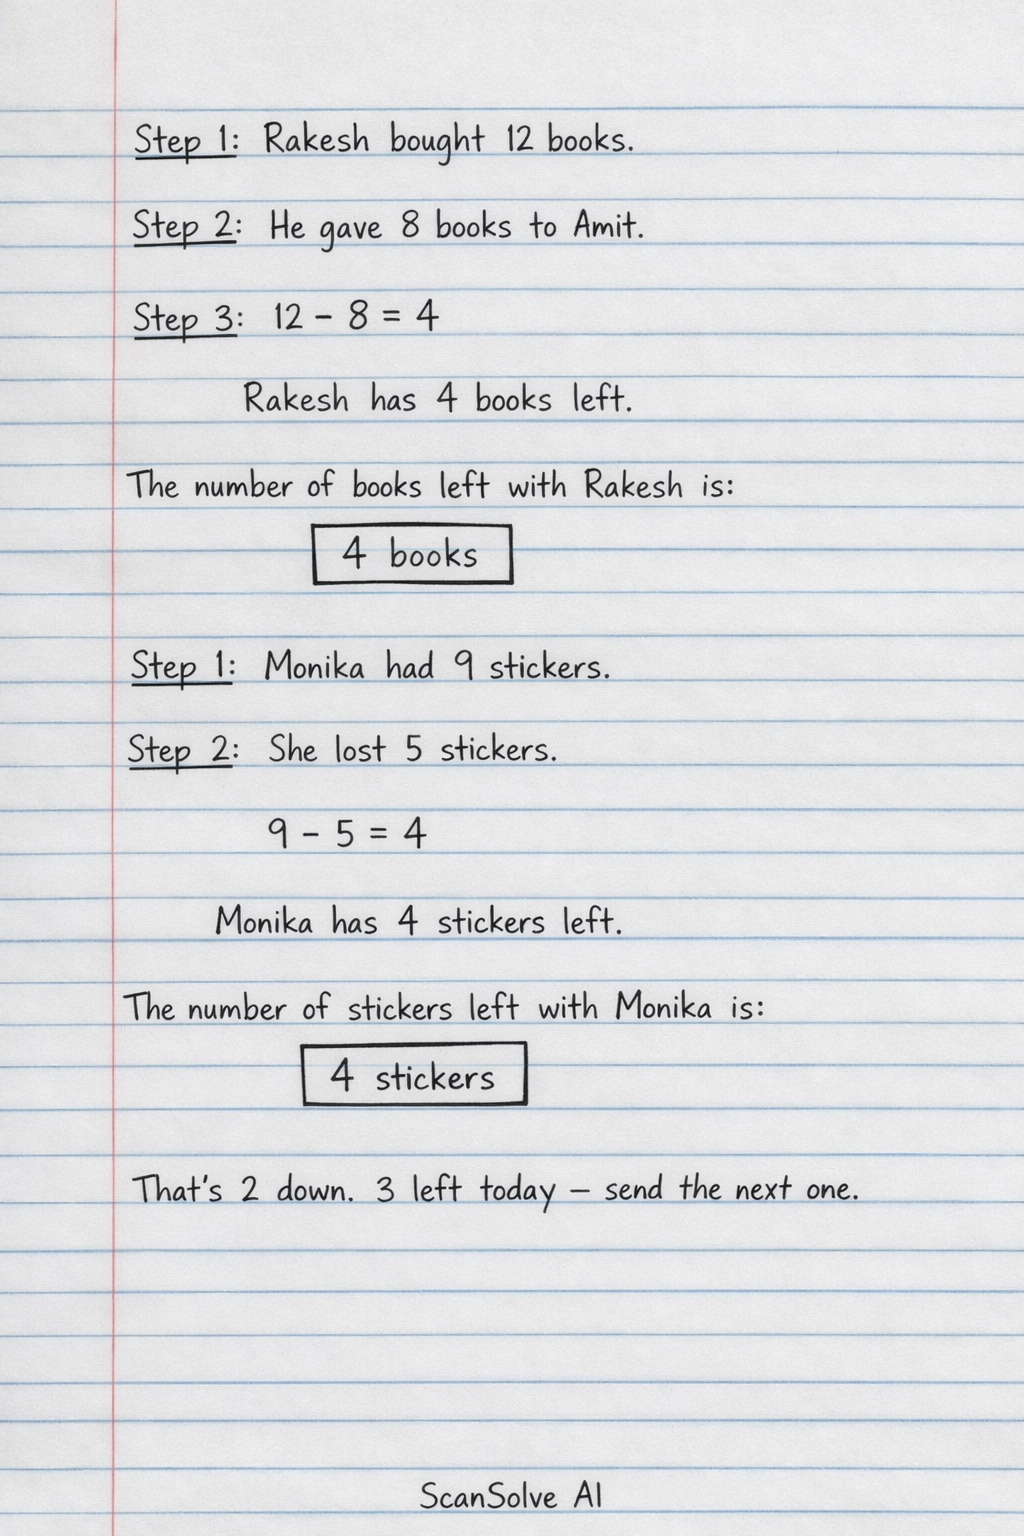 Step 1: Rakesh bought 12 books.
Step 2: He gave 8 books to Amit.
Step 3: 12 − 8 = 4
Rakesh has 4 books left.
The number of books left with Rakesh is:
4 books
Step 1: Monika had 9 stickers.
Step 2: She lost 5 stickers.
9 − 5 = 4
Monika has 4 stickers left.
The number of stickers left with Monika is:
4 stickers
That's 2 down. 3 left today — send the next one.
ScanSolve AI